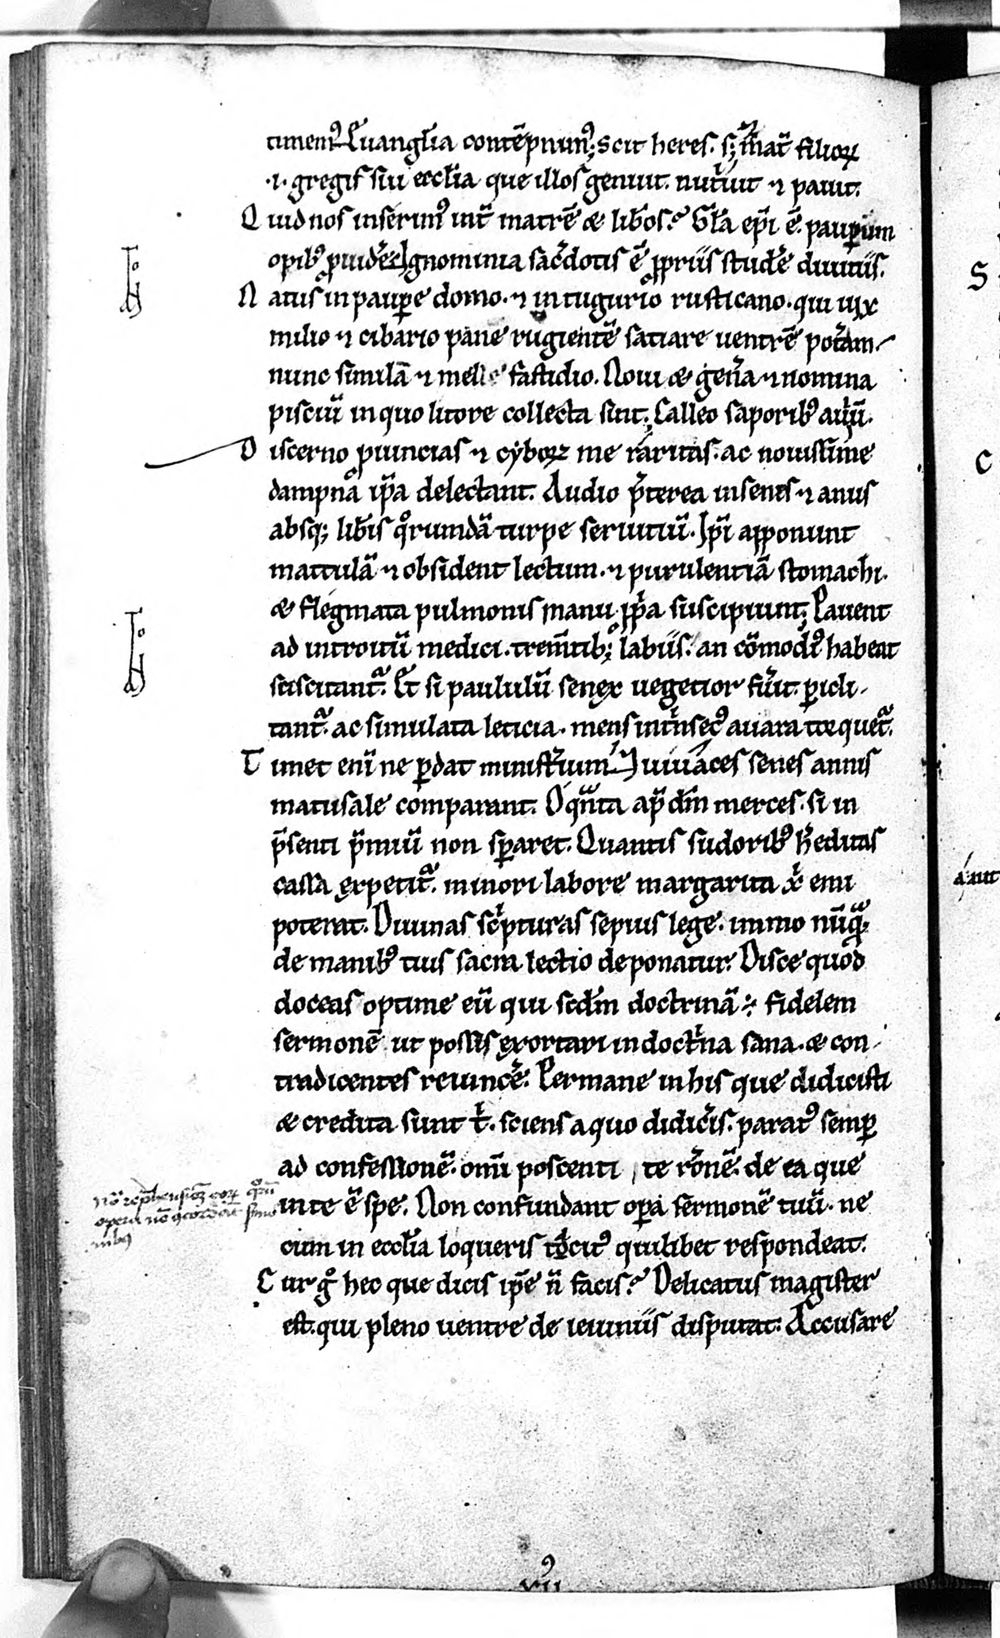 timem᷒. Euangl̄ia contēpnim᷒; Scit heres. sꝫ mat̄ filioꝝ
.i. gregis sui eccl̄ia que illos genuit. nut͛uit ⁊ pauit.
Quid nos inserim᷒ int̄ matrē & lib̄os? Gl̄a ep̄i ē. pauꝑum
opib᷒ ꝓuid͛e. Ignominia sac͛dotis ē ꝓpriis stud͛e diuitiis.
Natus in pauꝑe domo. ⁊ in tugurio rusticano. qui uix
milio ⁊ cibario pane rugientē satiare uentrē pot͛am.
nunc similā ⁊ melle fastidio. Noui & gen͛a ⁊ nomina
pisciū in quo litore collecta sint. Calleo saporib᷒ auiū.
Discerno ꝓuincias ⁊ cyboꝝ me raritas. ac nouissime
dampna ip̄a delectant. Audio p̄terea in senes ⁊ anus
absqꝫ lib̄is qͦrumdā turpe seruitiū. Ip̄i apponunt
mattulā ⁊ obsident lectum. ⁊ purulentiā stomachi.
& flegmata pulmonis manu ꝓpͥa suscipiunt; Pauent
ad introitū medici. trem̄tibꝫ labiis. an cōmodi᷒ habeat
sciscitantᷣ. Et si paululū senex uegetior fu͛it. ꝑicli-
tantᷣ. ac simulata leticia. mens int͛nsec᷒ auara torquetᷣ.
Timet enī ne ꝑdat minist͛ium. ⁊ uiuaces senes annis
matusale comparant. O qᷓnta ap̄ dm̄ merces. si in
p̄senti p̄miū non sꝑaret. Quantis sudorib᷒ h͛editas
cassa expetitᷣ. minori labore margarita x̄ emi
poterat. Diuinas sc͛pturas sepius lege. immo nūqᷓ
de manib᷒ tuis sacra lectio deponatur. Disce quod
doceas optime eū qui scdm̄ doctrinā ē fidelem
sermonē ut possis exortari in doct͛na sana. & con-
tradicentes reuinc͛e. Permane in his que didicisti
& credita sunt t͛. sciens a quo didic͛is. parat᷒ semꝑ
ad confessionē. om̄i poscenti te rōnē. de ea que
in te ē spe. Non confundant oꝑa sermonē tuū. ne
cum in eccl̄ia loqueris tacit᷒ quilibet respondeat.
Cur gͦ hec que dicis ip̄e n̄ facis? Delicatus magister
est. qui pleno uentre de ieiuniis disputat. Accusare
opera
viii᷒